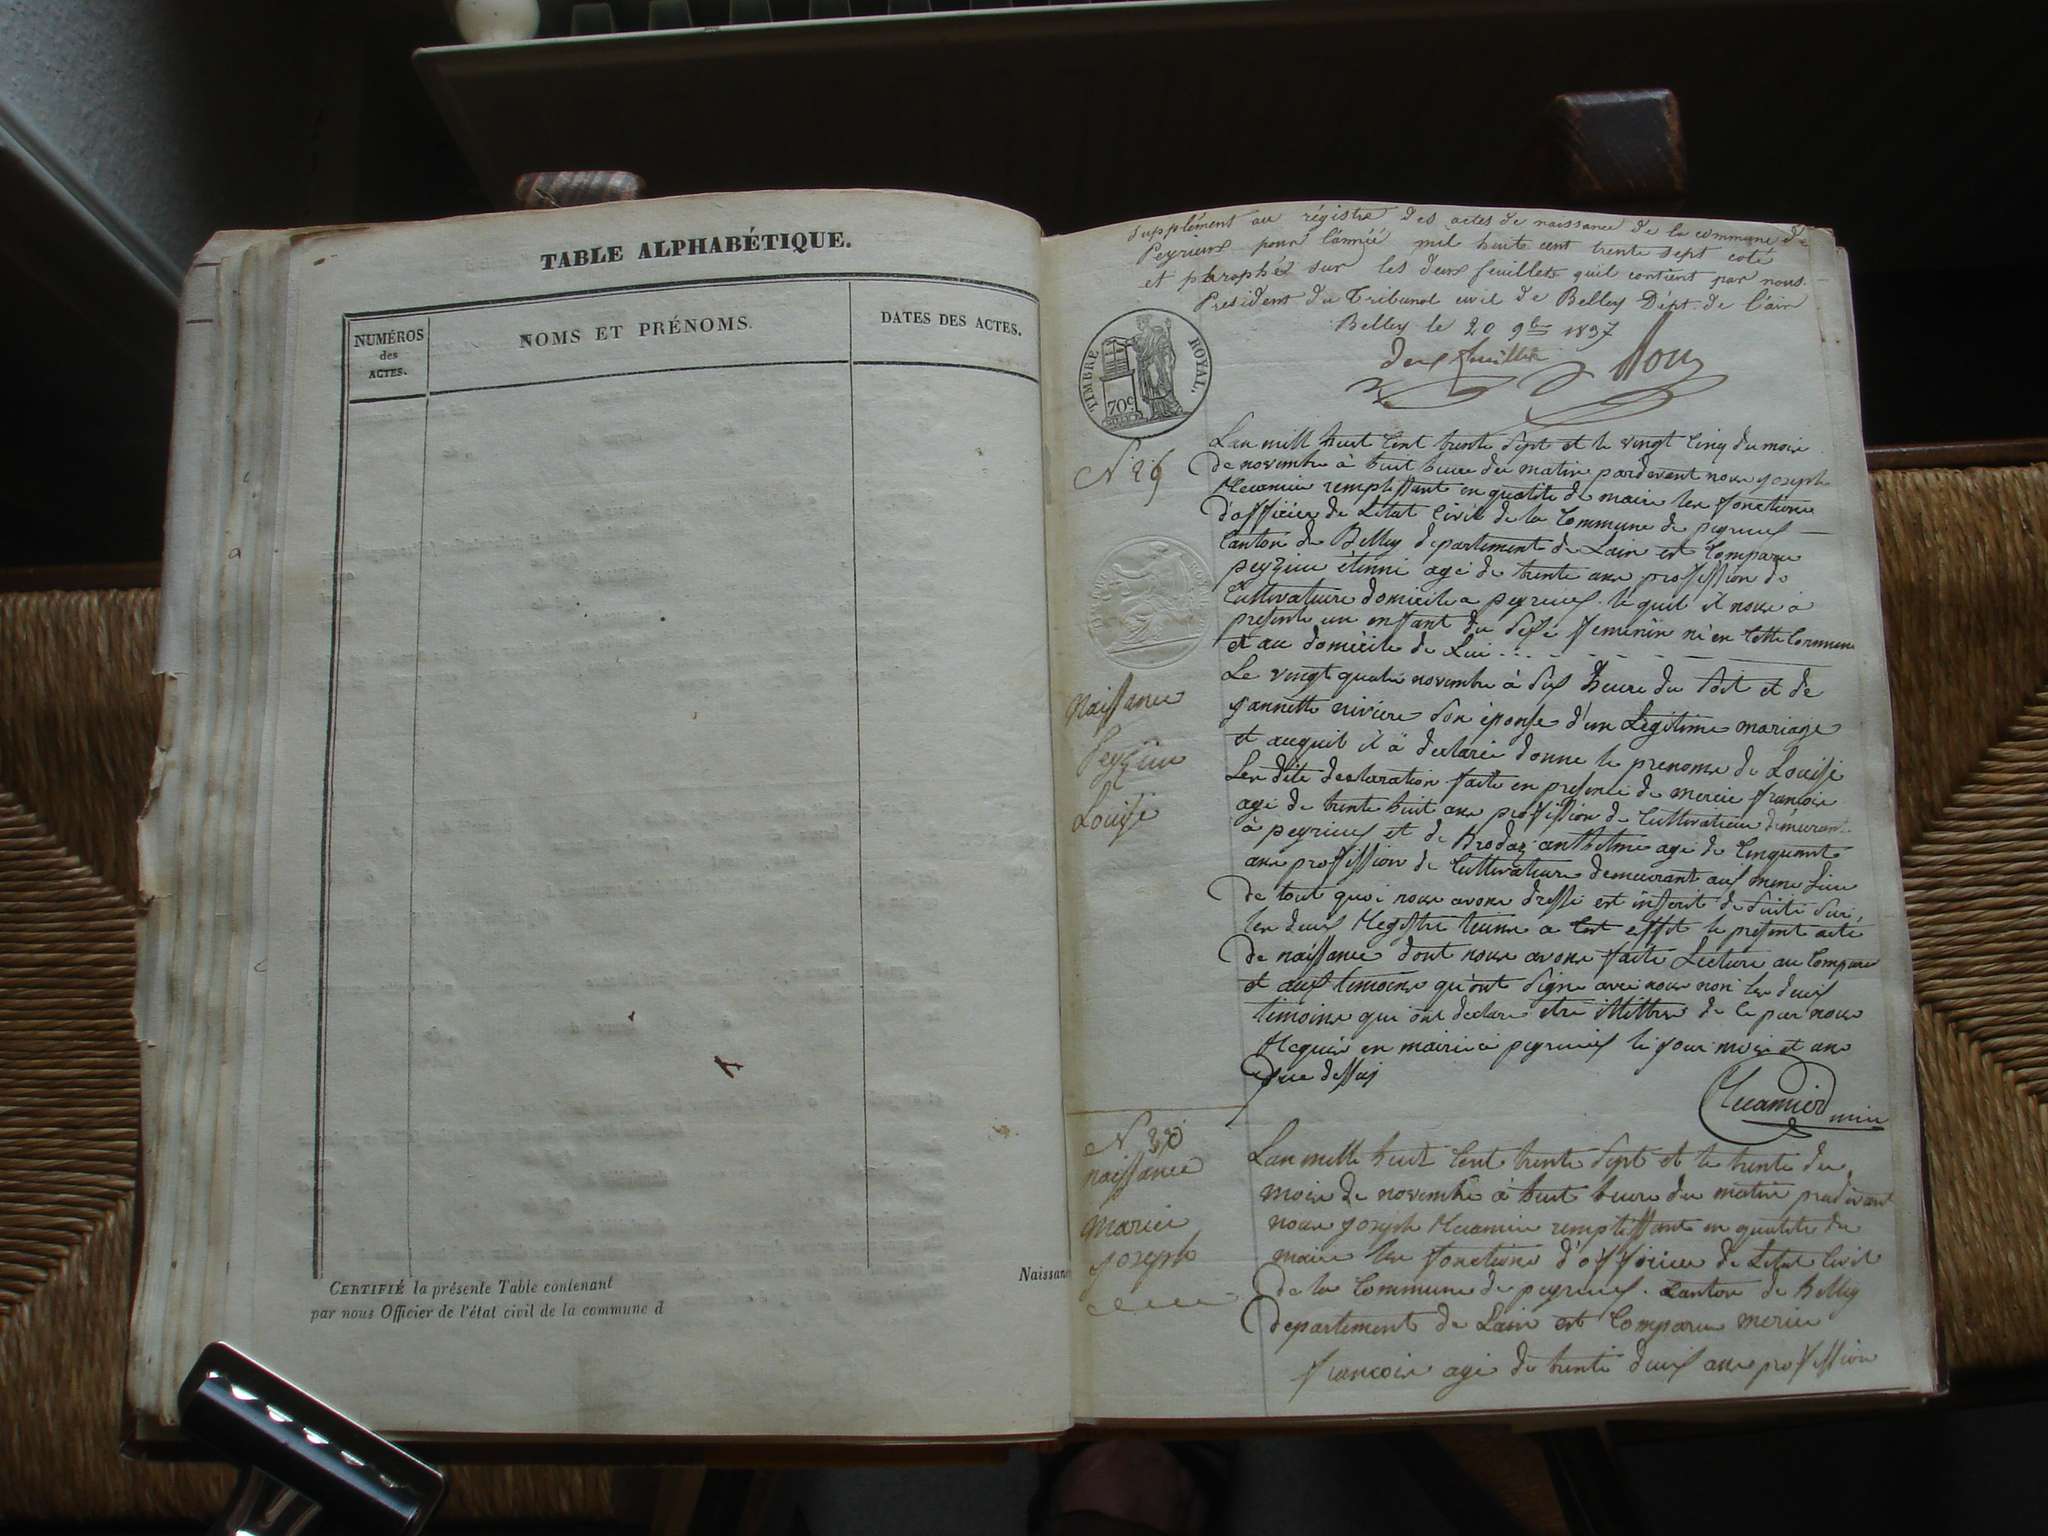 TABLE ALPHABÉTIQUE.
NUMÉROS
des
ACTES.
NOMS ET PRÉNOMS.
DATES DES ACTES.
CERTIFIÉ la présente Table contenant
par nous Officier de l'état civil de la commune d
Naissan
supplément au régistre des actes de naissance de la commune de
Peyrieux pour l'année mil huite cent trente sept coté
et paraphé sur les deux feuillets qu'il contient par nous
Président du Tribunal civil de Belley Dépt. de l'ain
Belley le 20 9bre 1837
deux feuillets
TIMBRE ROYAL.
70c
N 26
naissance
Peyzieu
Louise
Lan mill huit Cent trente Sept et le vingt Cinq du mois
de novembre à huit heure du matin pardevant nous joseph
Recamier remplissant en qualité de maire les fonctions
d'officier de Létat Civil de la Commune de peyrieux
Canton de Belley departement de Lain est Comparu
peyzieu étienne agé de trente ans profession de
Cultivateur domicile a peyrieux lequel il nous à
presente un enfant du Sexe feminin né en Cette Commune
et au domicile de Lui
Le vingt quatre novembre à Six heure du Soit et de
jannette riviere Son éponse d'un Legitime mariage
et auquel il à declaré donne le prenoms de Louise
Les dite declaration faite en presence de mercie françois
agé de trente huit ans profession de Cultivateur demeurant
à peyrieux et de Brodaz anthelme agé de Cinquante
ans profession de Cultivateur demeurant aux meme Lieu
de tout quoi nous avons dressé est inscrit de Suite Sur
les deux Registre tenus a Cet effet le présent acte
de naissance dont nous avons faite Lecture au Comparu
et aux temoins qu'ont Signe avec nous non les deux
temoins qui ont declare être illettres de ce par nous
Requis en mairie à peyrieux le jour mois et ans
que dessus
Recamier maire
N 27
naissance
Marie
joseph
Lan mille huit Cent trente Sept et le trente du
mois de novembre à huit heure du matin
nous joseph Recamier remplissant en qualité de
maire les fonctions d'officier de Létat Civil
de la Commune de peyrieux. Canton de Belley
departement de Lain est Comparu mercie
françois agé de trente deux ans profession